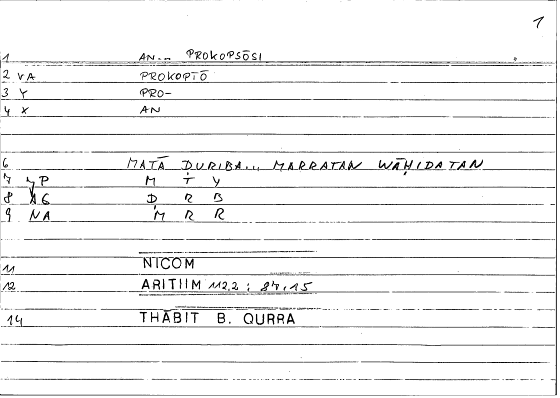 1
1 AN... PROKOPSŌSI
2 VA PROKOPTŌ
3 Y PRO-
4 X AN
6 MATĀ ḌURIBA... MARRATAN WĀḤIDATAN
7 YP M T Y
8 AG Ḍ R B
9 NA M R R
11 NICOM
12 ARITIIM 112,2 : 84,15
14 THĀBIT B. QURRA